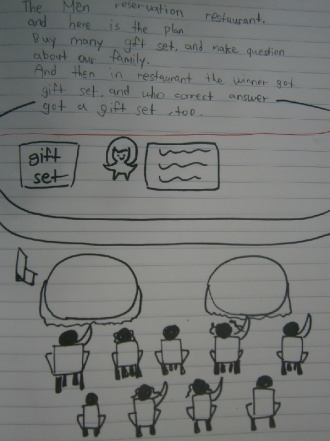 The Men reservation restaurant.
and here is the plan
Buy many gift set, and make question
about our family.
And then in restaurant the winner got
gift set, and who correct answer
got a gift set, too.
gift
set